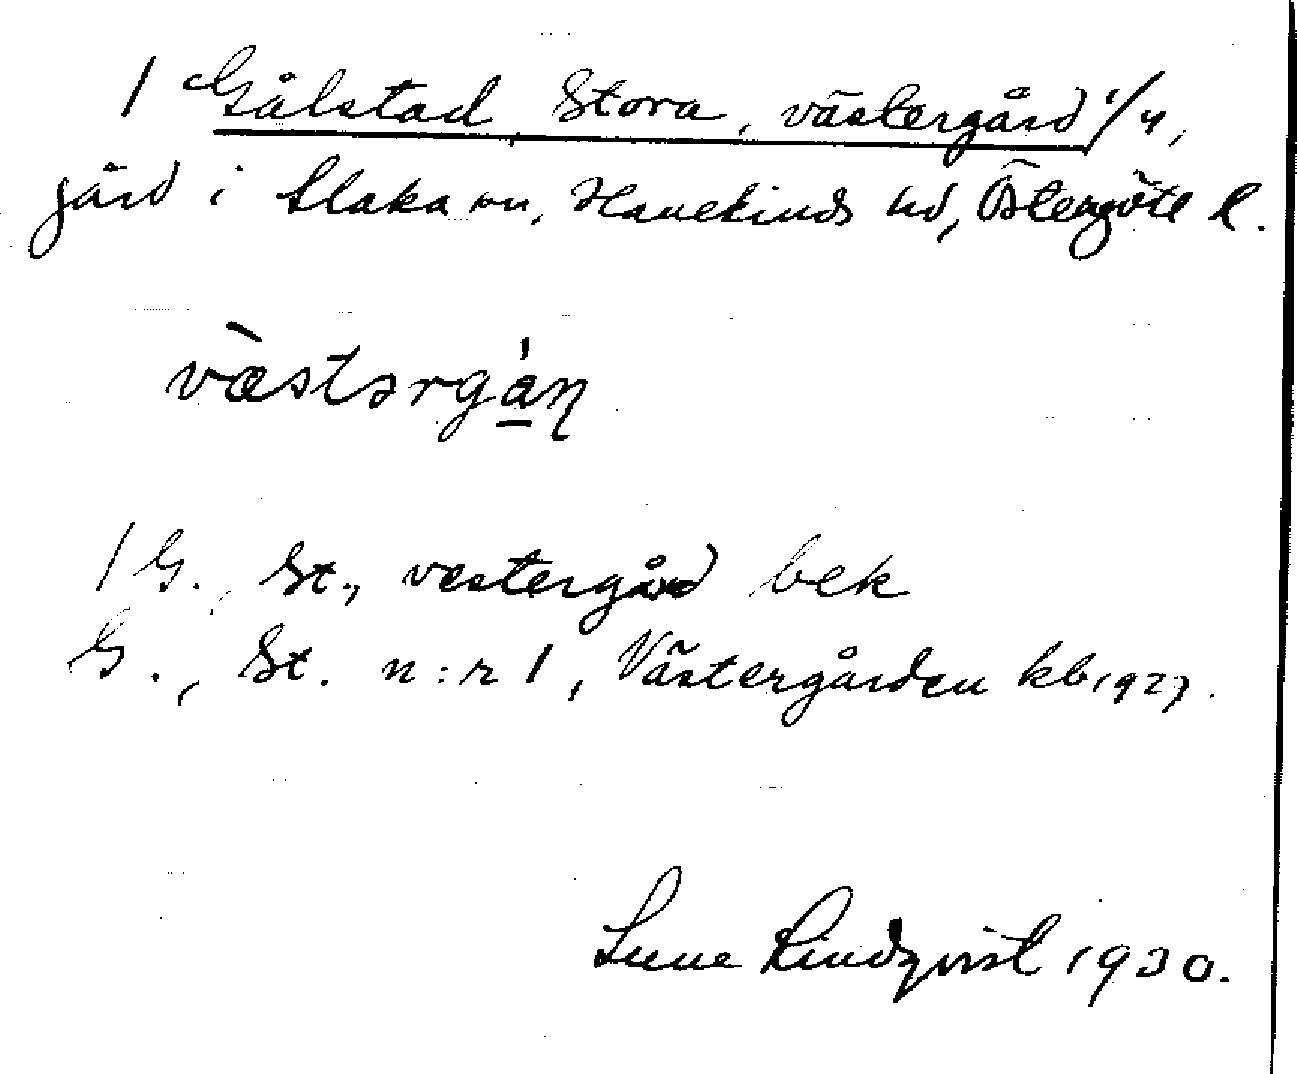 1 Gålstad, Stora, västergård 1/4,
gård i Slaka sn, Hanekinds hd, Östergötl l.
væ̀stərgá̱ṇ
1 G., St., vestergård bek
G., St. n:r 1, Västergården kb 1927.
Sune Lindqvist 1930.